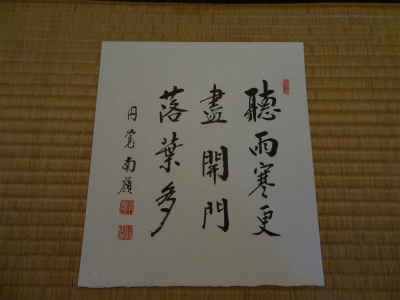 聽雨寒更
盡開門
落葉多
円覚南嶺